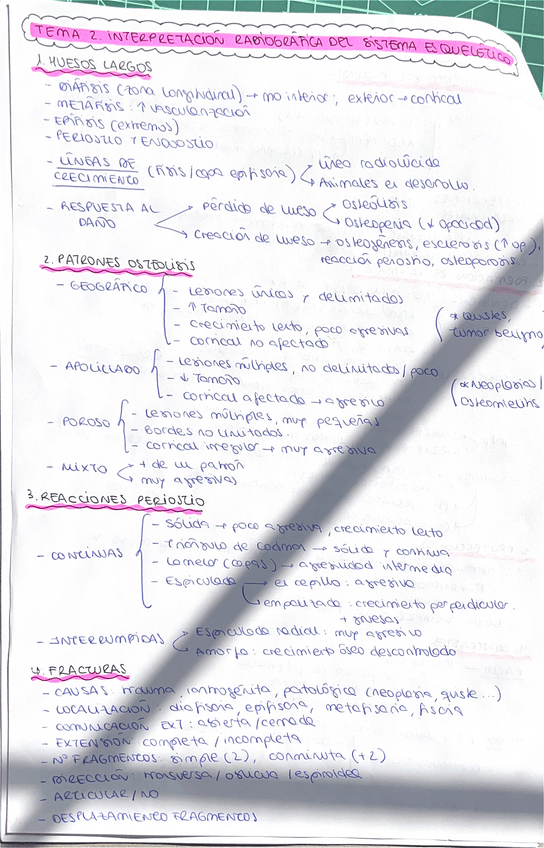 TEMA 2. INTERPRETACIÓN RADIOGRÁFICA DEL SISTEMA ESQUELÉTICO
1. HUESOS LARGOS
- DIÁFISIS (zona longitudinal) → mo interior; exterior → cortical
- METÁFISIS: ↑ vascularización
- EPÍFISIS (extremos)
- PERIOSTIO Y ENDOSTIO
- LÍNEAS DE CRECIMIENTO (fisis/capa epifisaria) < Línea radiolúcida
Animales en desarrollo.
- RESPUESTA AL DAÑO → pérdida de hueso < Osteólisis
Osteopenia (↓ opacidad)
→ creación de hueso → osteogénesis, esclerosis (↑ op),
reacción periostio, osteoporosis.
2. PATRONES OSTEOLISIS
- GEOGRÁFICO { - Lesiones únicas y delimitadas
- ↑ Tamaño
- Crecimiento lento, poco agresivas
- cortical no afectado
(* Quistes,
tumor benigno
- APOLILLADO { - Lesiones múltiples, no delimitadas/poco
- ↓ Tamaño
- cortical afectado → agresivo
(* Neoplasia/
Osteomielitis
- POROSO { - Lesiones múltiples, muy pequeñas
- Bordes no limitados.
- cortical irregular → muy agresiva
- MIXTO < + de un patrón
muy agresivas
3. REACCIONES PERIOSTIO
- CONTINUAS { - Sólida → poco agresiva, crecimiento lento
- Triángulo de codman → sólida y continua
- Lamelar (capas) → agresividad intermedia
- Espiculada → en cepillo: agresiva
→ empalizada: crecimiento perpendicular.
+ gruesas
- INTERRUMPIDAS < Espiculada radial: muy agresiva
Amorfa: crecimiento óseo descontrolado
4. FRACTURAS
- CAUSAS: trauma, iatrogénita, patológica (neoplasia, quiste...)
- LOCALIZACIÓN: diafisaria, epifisaria, metafisaria, fisaria
- COMUNICACIÓN EXT: abierta/cerrada
- EXTENSIÓN: completa/incompleta
- Nº FRAGMENTOS: simple (2), conminuta (+2)
- DIRECCIÓN: transversa/oblicua/espiroidea
- ARTICULAR/NO
- DESPLAZAMIENTO FRAGMENTOS